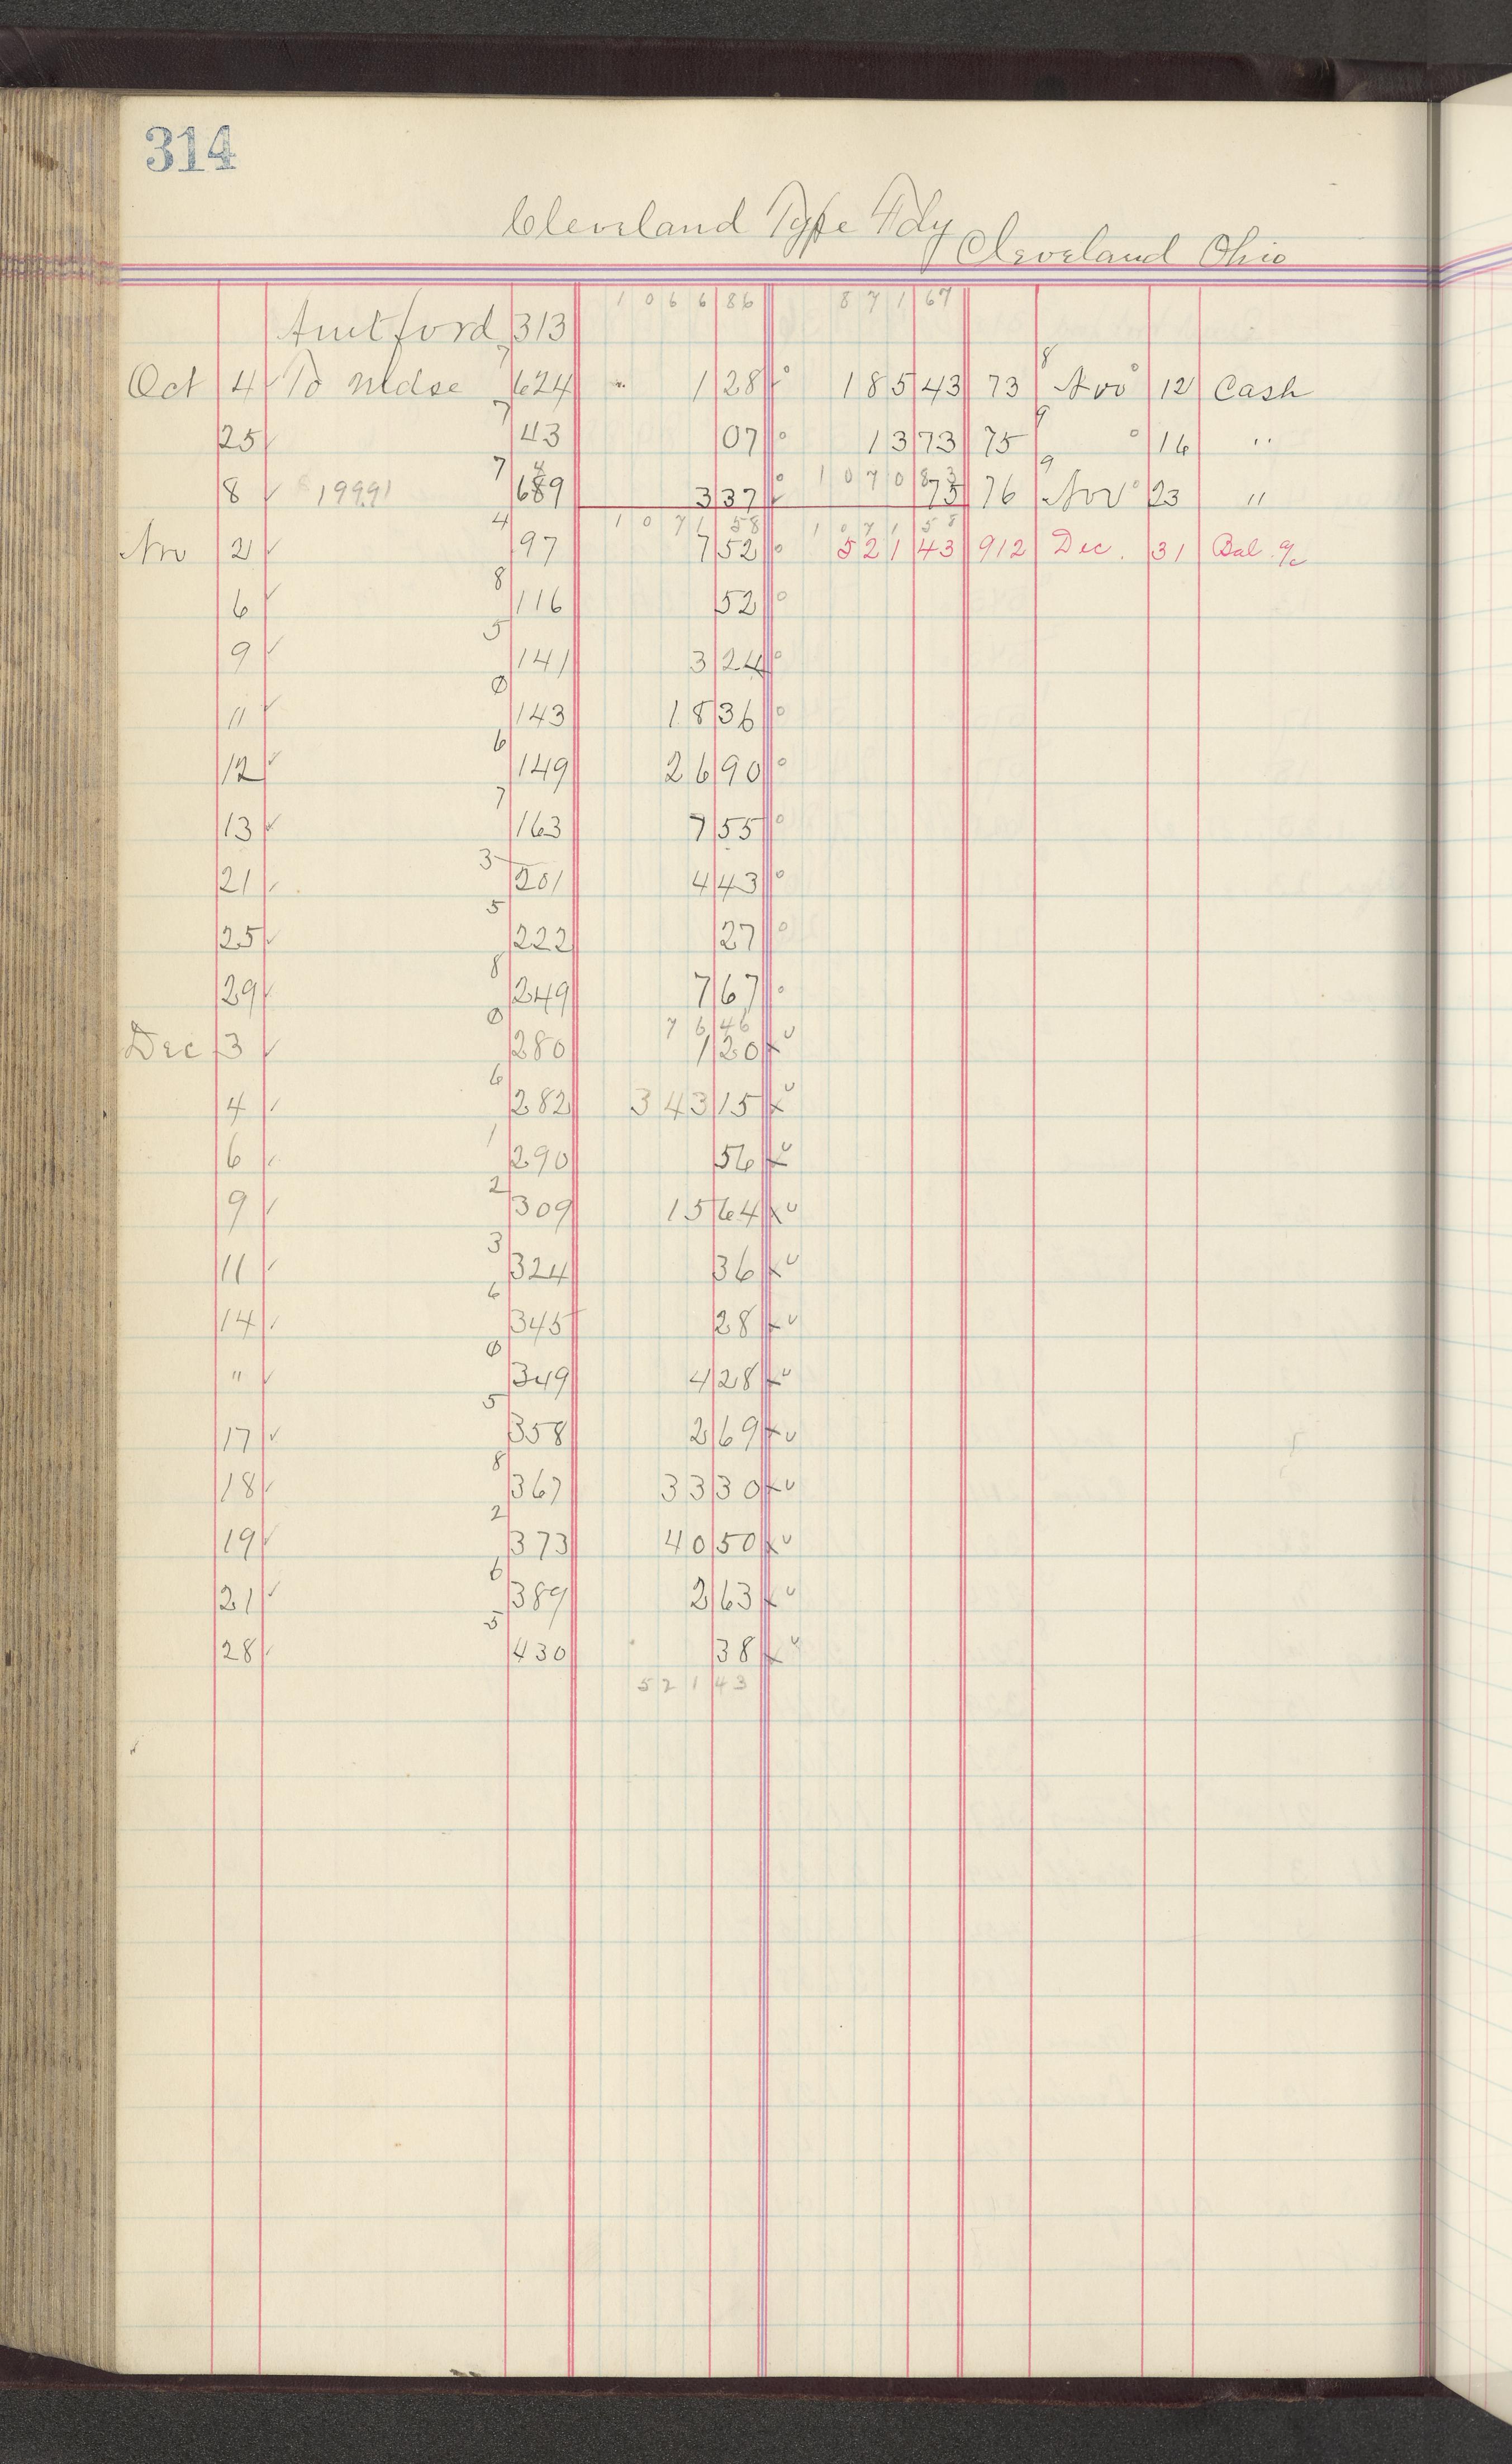 314
Cleveland Type Fdy Cleveland Ohio
Amt ford 313 1066 86 871 67
Oct 4 To Mdse 7 624 1 28 185 43 73 8 Nov 12 Cash
25 7 43 07 13 73 75 9 16 "
8 19991 7 689 3 37 1070 83 75 76 9 Nov 23 "
1071 58 1071 58
Nov 2 4 97 7 52 521 43 912 Dec. 31 Bal. a/c
6 8 116 52
9 5 141 3 24
11 0 143 18 36
12 6 149 26 90
13 7 163 7 55
21 3 201 4 43
25 5 222 27
29 8 249 7 67
76 46
Dec 3 0 280 1 20
4 6 282 343 15
6 1 290 56
9 2 309 15 64
11 3 324 36
14 6 345 28
" 0 349 4 28
17 5 358 2 69
18 8 367 33 30
19 2 373 40 50
21 6 389 2 63
28 5 430 38
521 43